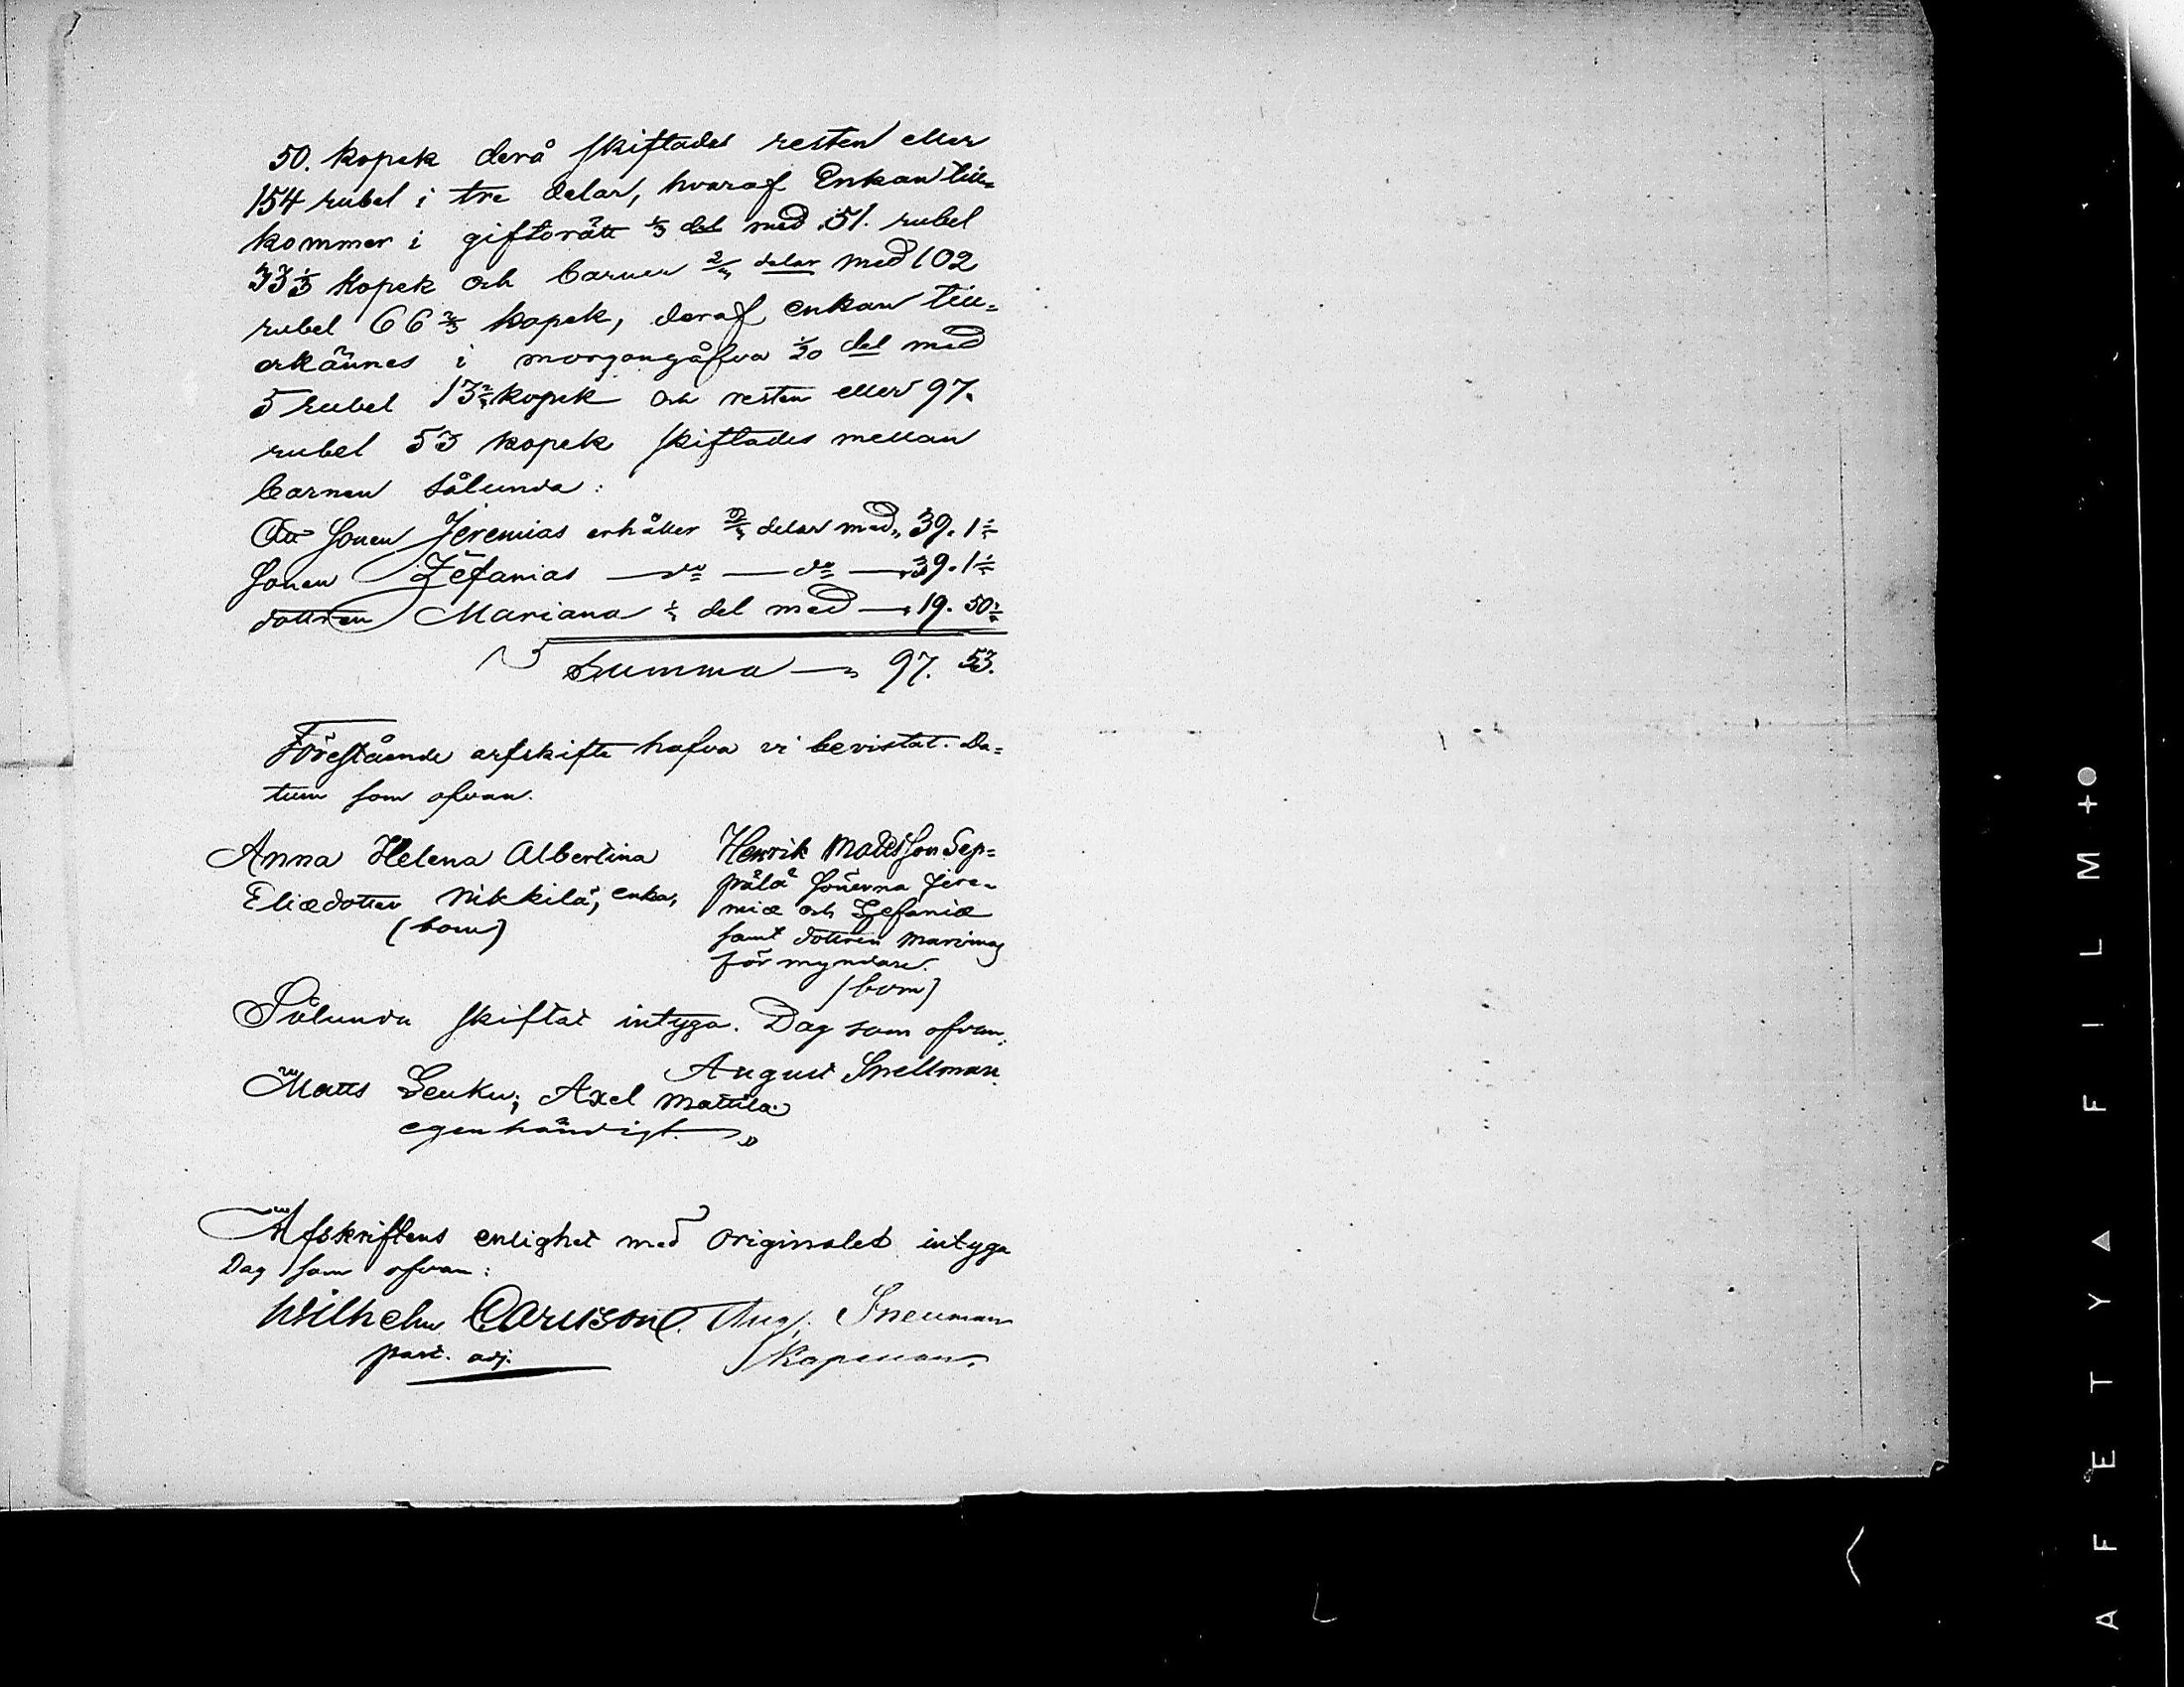 50. kopek derå skiftades resten eller
154 rubel i tre delar, hvaraf Enkan till=
kommer i giftorätt 1/3 del med 51. rubel
33 1/3 kopek och barnen 2/3 delar med 102
rubel 66 2/3 kopek, deraf enkan till=
erkännes i morgongåfva 1/20 del med
5 rubel 13 2/3 kopek och resten eller 97.
rubel 53 kopek skiftades mellan
barnen sålunda:
Att Sonen Jeremias erhåller 2/5 delar med „ 39. 1 1/5
Sonen Zefanias — do — do — „ 39. 1 1/5
dottren Mariana 1/5 del med — „ 19. 50 3/5
Summa — „ 97. 53.
Förestående arfskifte hafva vi bevistat. Da=
tum som ofvan.
Anna Helena Albertina
Eliædotter Nikkilä, enka,
(bom)
Henrik Mattsson Sep=
pälä Sönerna Jere=
miæ och Zefaniæ
samt dottren Marianas
förmyndare.
(bom)
Sålunda skiftat intyga. Dag som ofvan.
August Snellman.
Matts Leuku; Axel Mattila
egenhändigt.
Afskriftens enlighet med Originalet intyga
Dag som ofvan:
Wilhelm Carlson. Aug. Snellman
past. adj. Kapellan.
AFETYA FILM